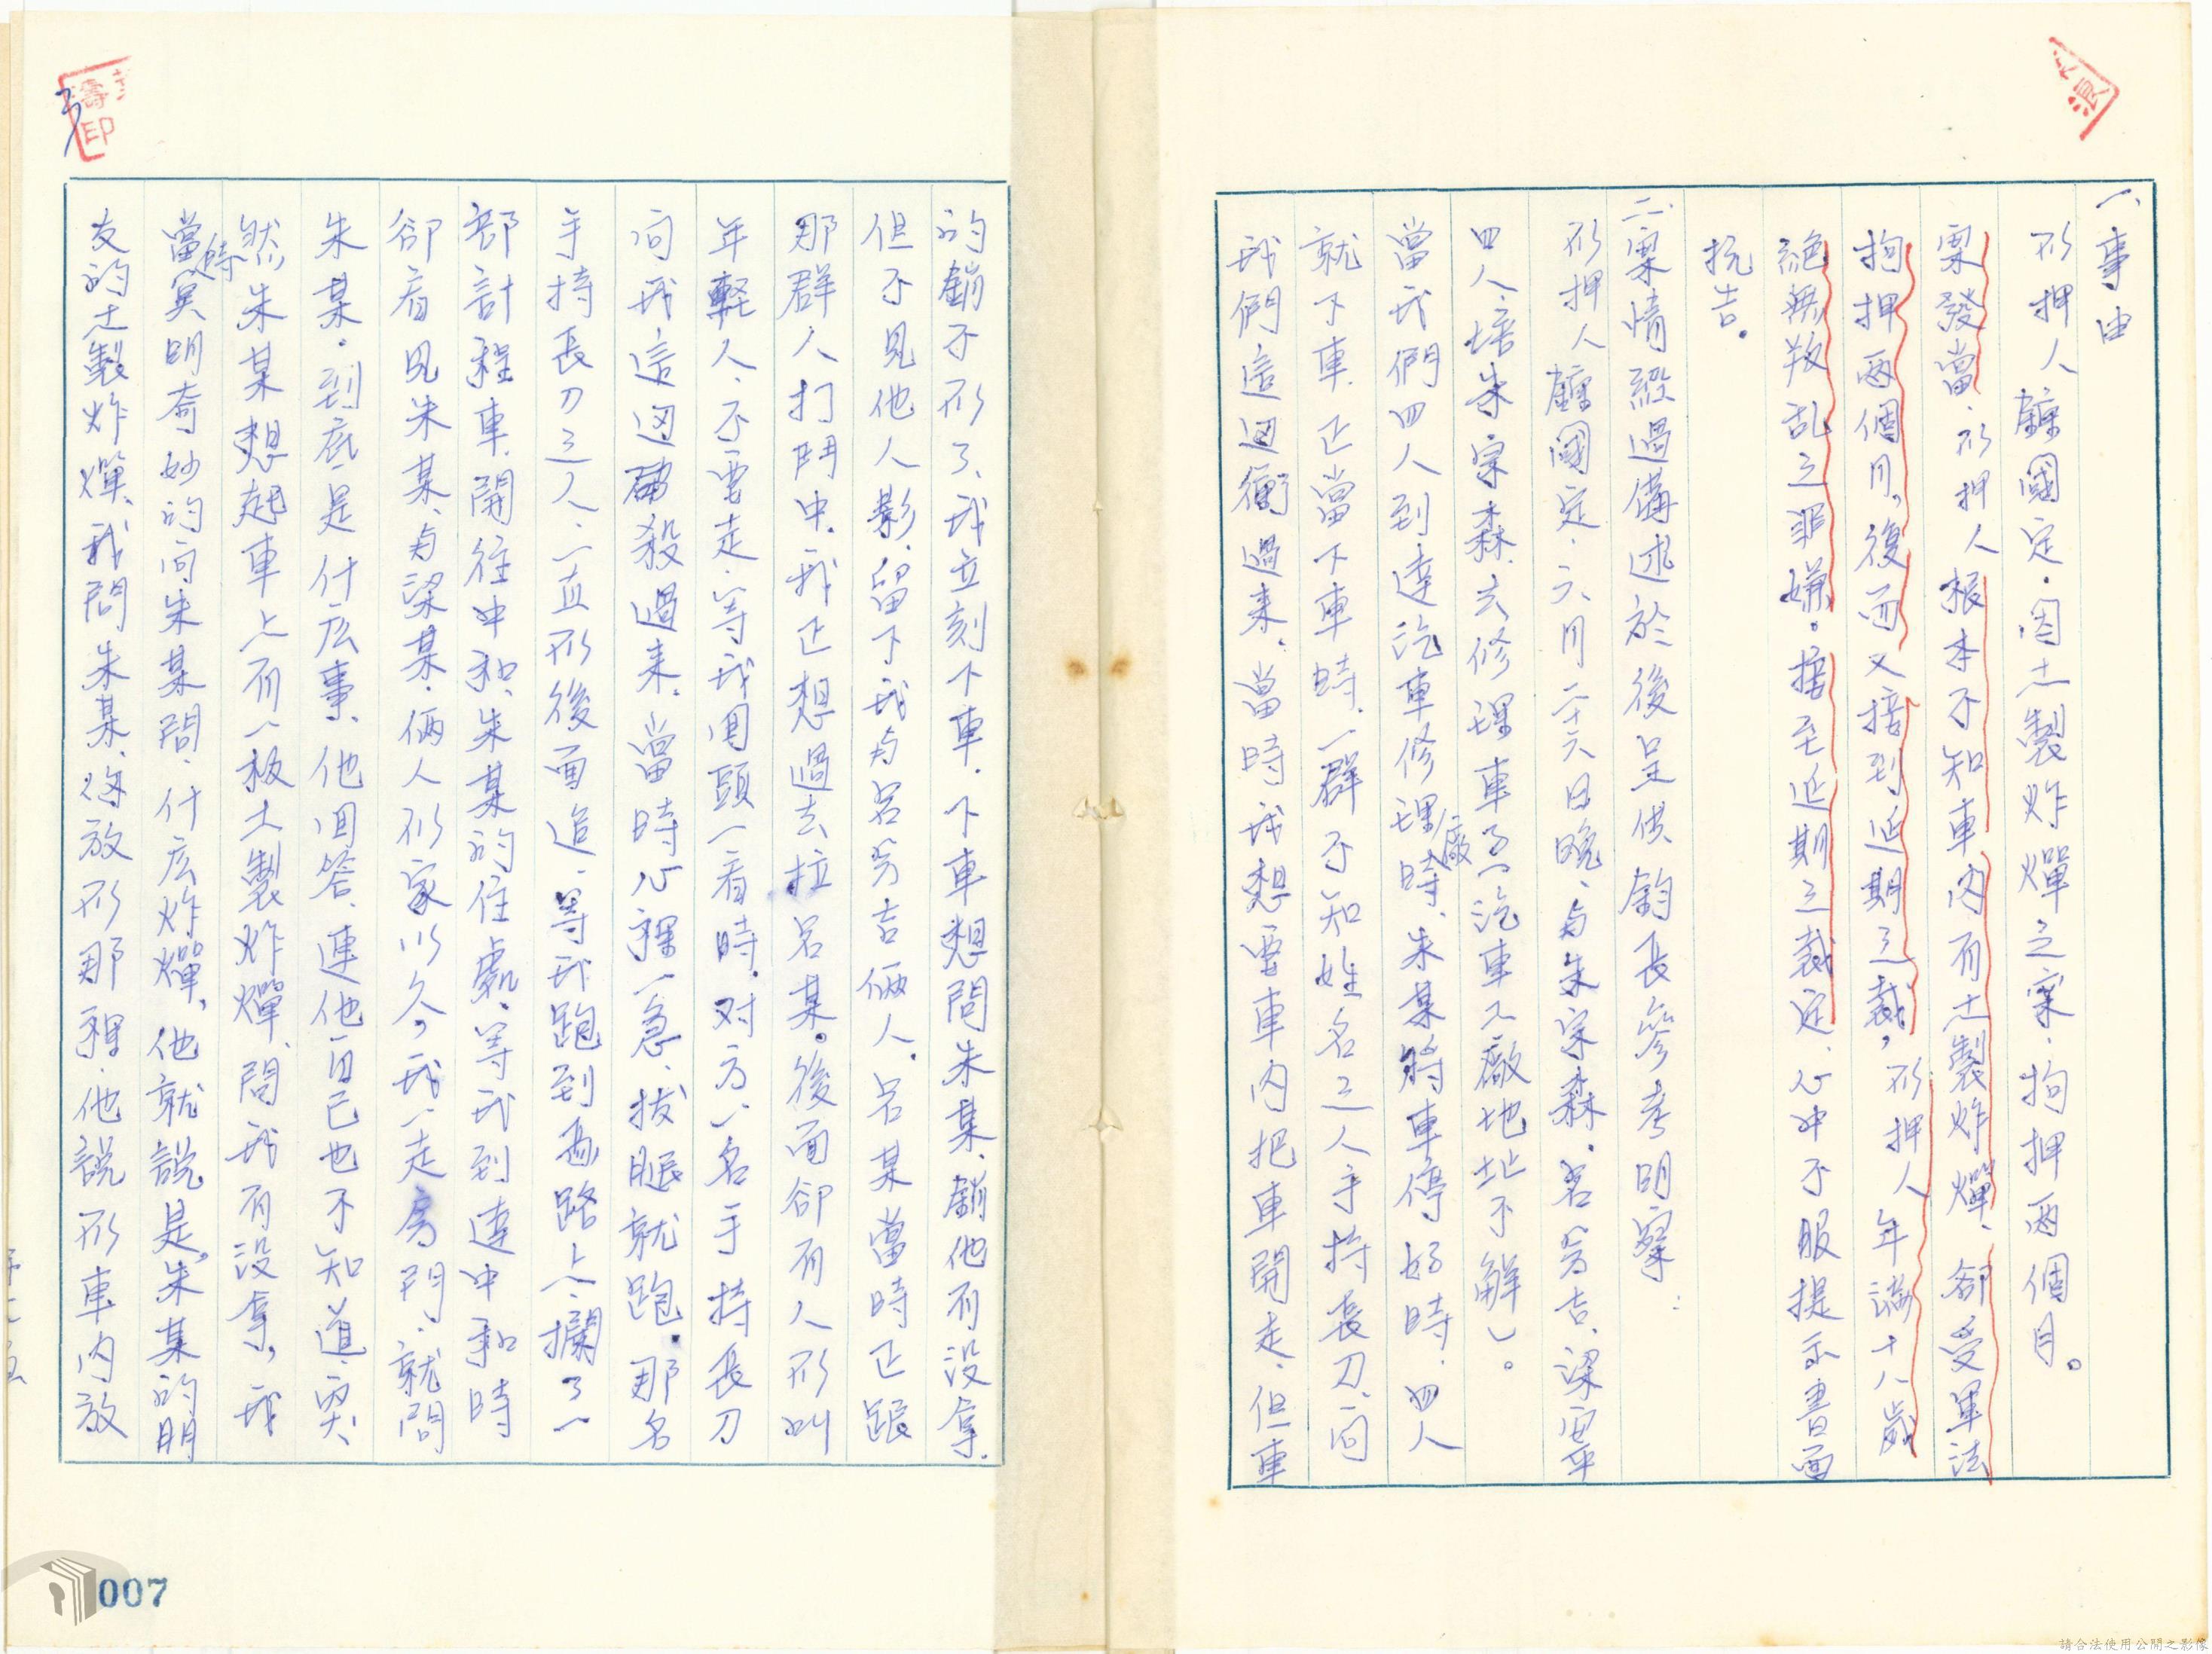 一、事由
在押人鐘國定，因土製炸燀之案，拘押兩個月。
案發當、在押人根本不知車內有土製炸燀、卻受軍法
拘押兩個月，後而又接到延期之裁，在押人年滿十八歲
絕無叛乱之罪嫌。接至延期之裁定、心中不服提示書面
抗告。
二、案情經過僃述於後呈供鈞長參考明察：
在押人鐘國定、六月二十六日晚、与朱宗森、呂芳吉、梁
四人、培朱宗森、去修理車子（汽車工廠地址不解）。
當我們四人到達汽車修理廠時、朱某將車停好時、四人
就下車、正當下車時、一群不知姓名之人手持長刀、向
我們這迊衝過来、當時我想要車內把車開走、但車
的鎖不在了、我立刻下車、下車想問朱某、鎖他有沒拿、
但不見他人影、留下我与呂芳吉俩人、呂某當時正跟
那群人打鬥中、我正想過去拉呂某。後面卻有人在叫
年輕人、不要走、等我囬頭一看時、对方一名手持長刀
向我這迊砍殺過来、當時心裡一急、拔腿就跑、那名
手持長刀之人、一直在後面追、等我跑到馬路上、攔了一
部計程車、開往中和、朱某的住處、等我到達中和時
卻看見朱某、与梁某、俩人在家以久，我一走房門、就問
朱某、到底是什広事、他囬答、連他自己也不知道、突
然、朱某想起車上有一枚土製炸燀、問我有沒拿，我
當時冥明奇妙的向朱某問、什広炸燀，他就說是，朱某的朋
友的土製炸燀、我問朱某、你放在那裡、他說在車內放
007
請合法使用公開之影像